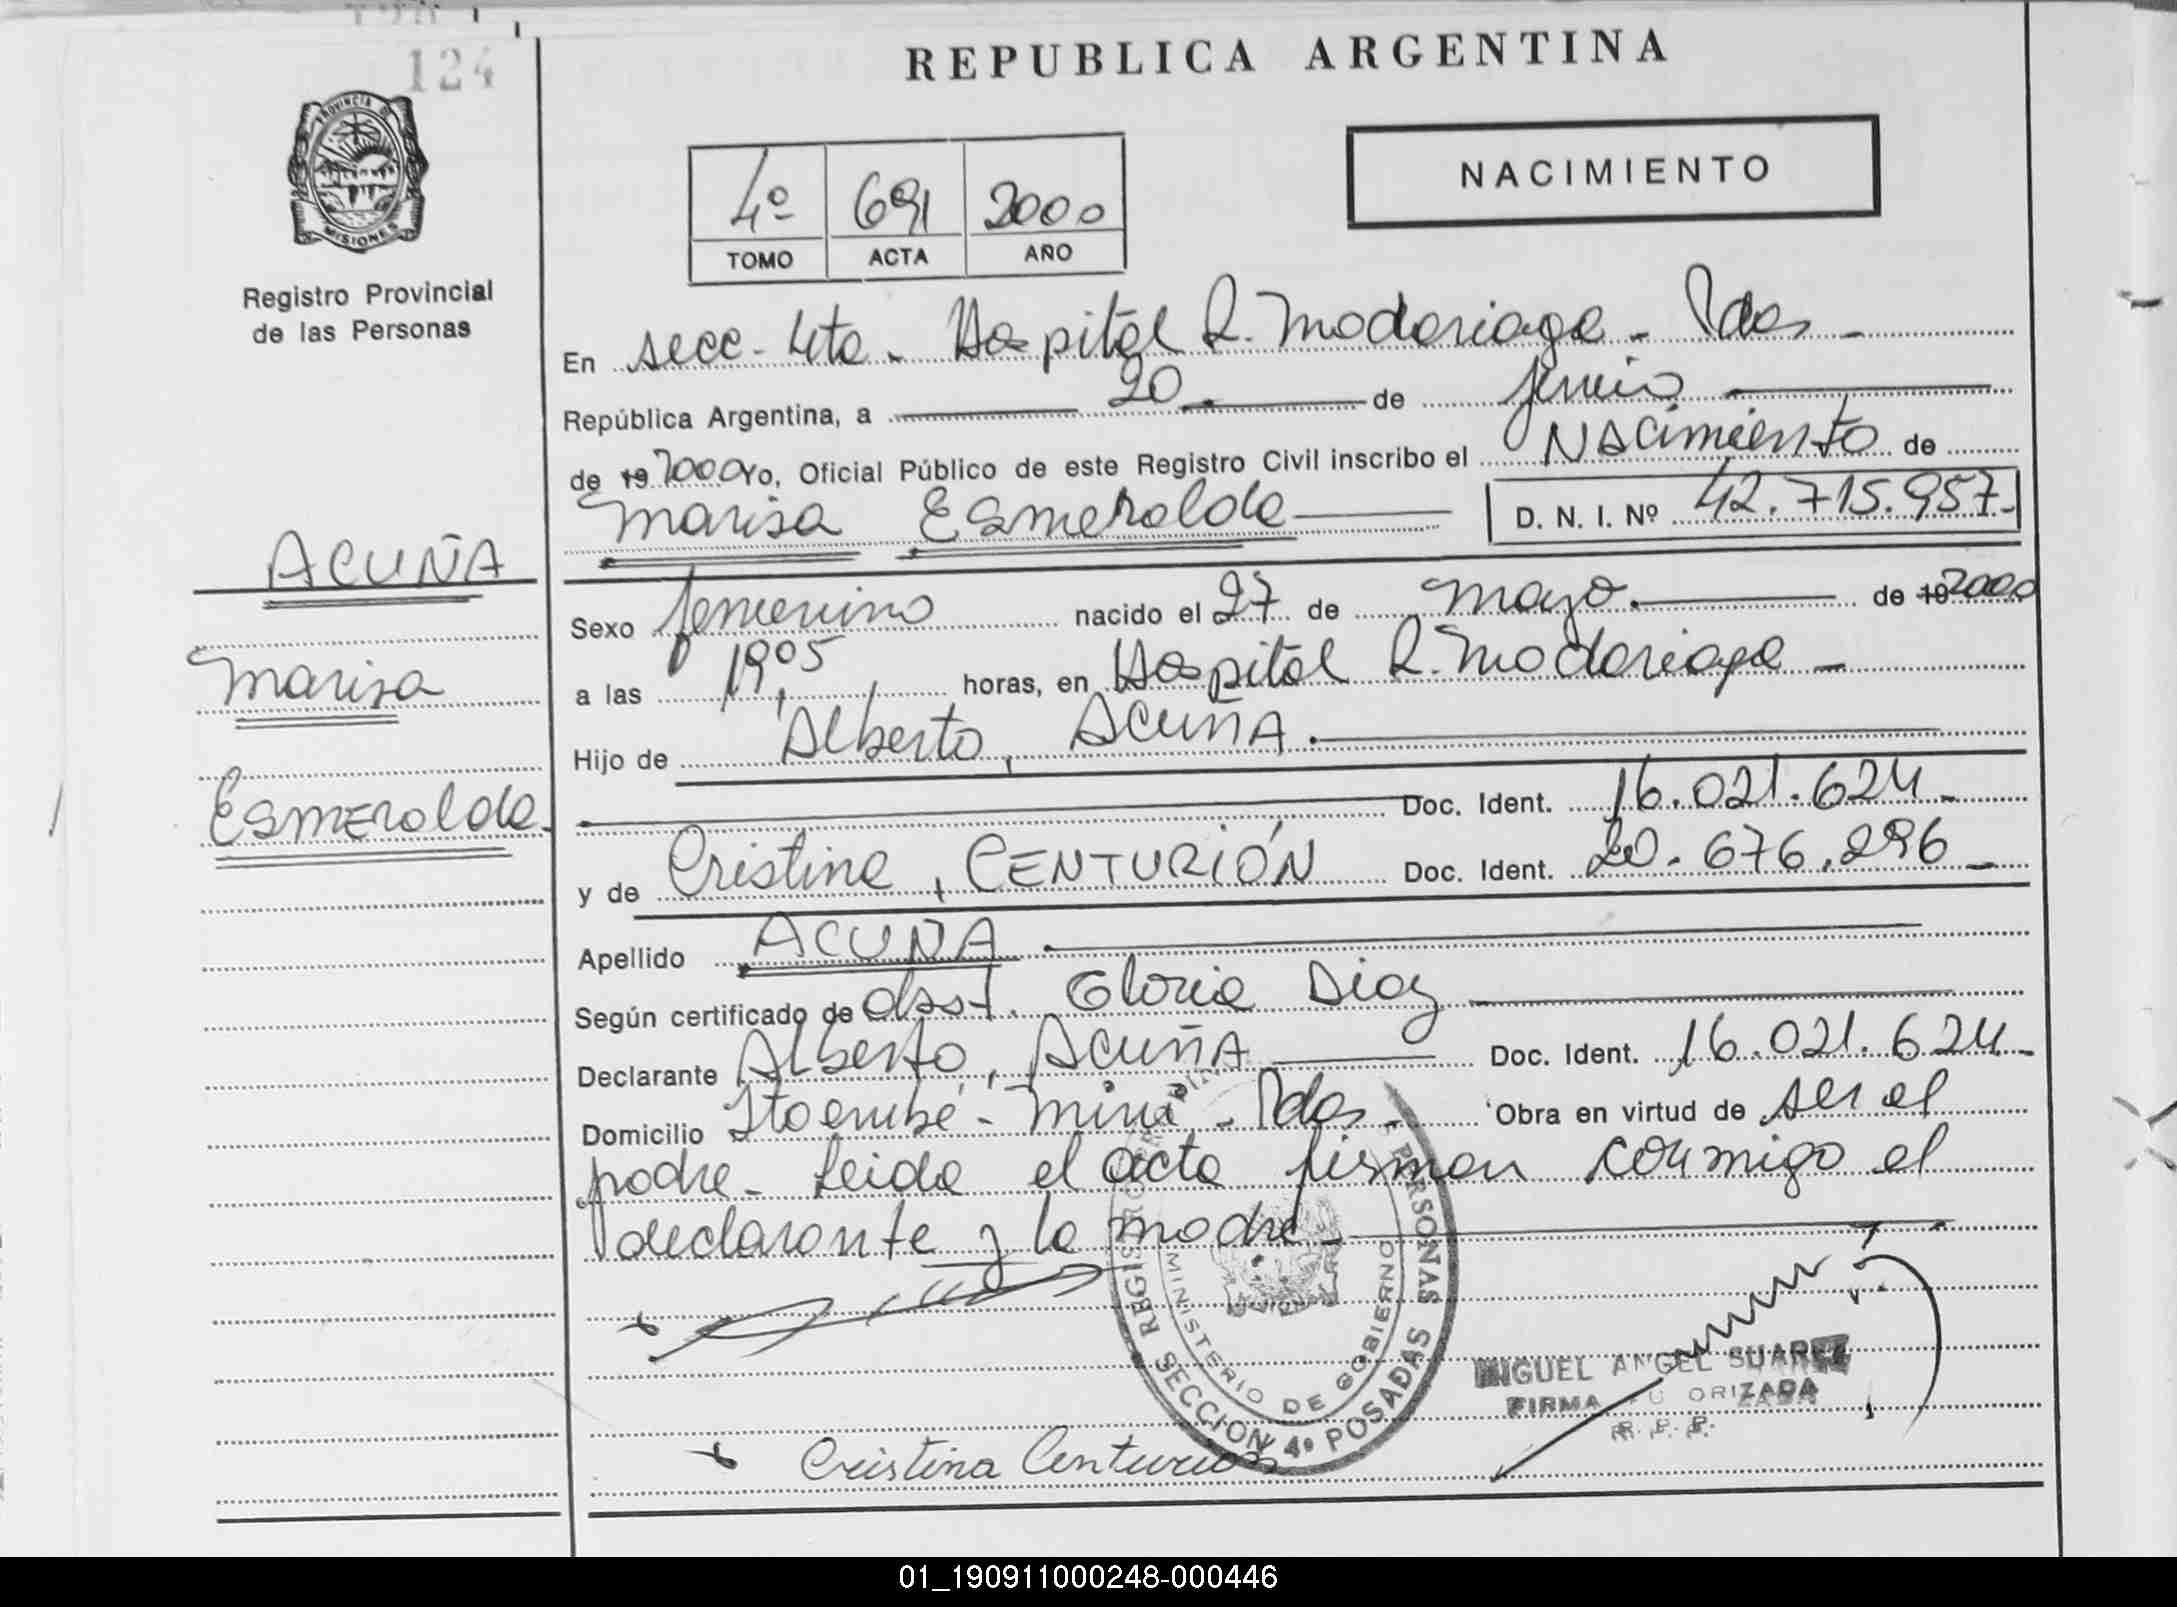 124
REPUBLICA ARGENTINA
PROVINCIA DE
MISIONES
Registro Provincial
de las Personas
4º 691 2000
TOMO ACTA AÑO
NACIMIENTO
En secc. 4ta - Hospital R. Madariaga - Pdas -
República Argentina, a 20 de junio
de 19 2000 Yo, Oficial Público de este Registro Civil inscribo el Nacimiento de
Marisa Esmeralda D. N. I. Nº 42.715.957-
ACUÑA
Marisa
Esmeralda-
Sexo femenino nacido el 27 de mayo. de 19 2000
a las 19,05 horas, en Hospital R. Madariaga -
Hijo de Alberto, ACUÑA.
Doc. Ident. 16.021.624-
y de Cristina, CENTURIÓN Doc. Ident. 20.676.296-
Apellido ACUÑA
Según certificado de obst. Gloria Diaz
Declarante Alberto, ACUÑA Doc. Ident. 16.021.624-
Domicilio Itaembé - Miní - Pdas - Obra en virtud de ser el
padre - Leida el acta firman conmigo el
declarante y la madre -
PERSONAS
MINISTERIO DE GOBIERNO
SECCION 4º POSADAS
MIGUEL ANGEL SUAREZ
FIRMA AUTORIZADA
R. P. P.
Cristina Centurion
01_190911000248-000446